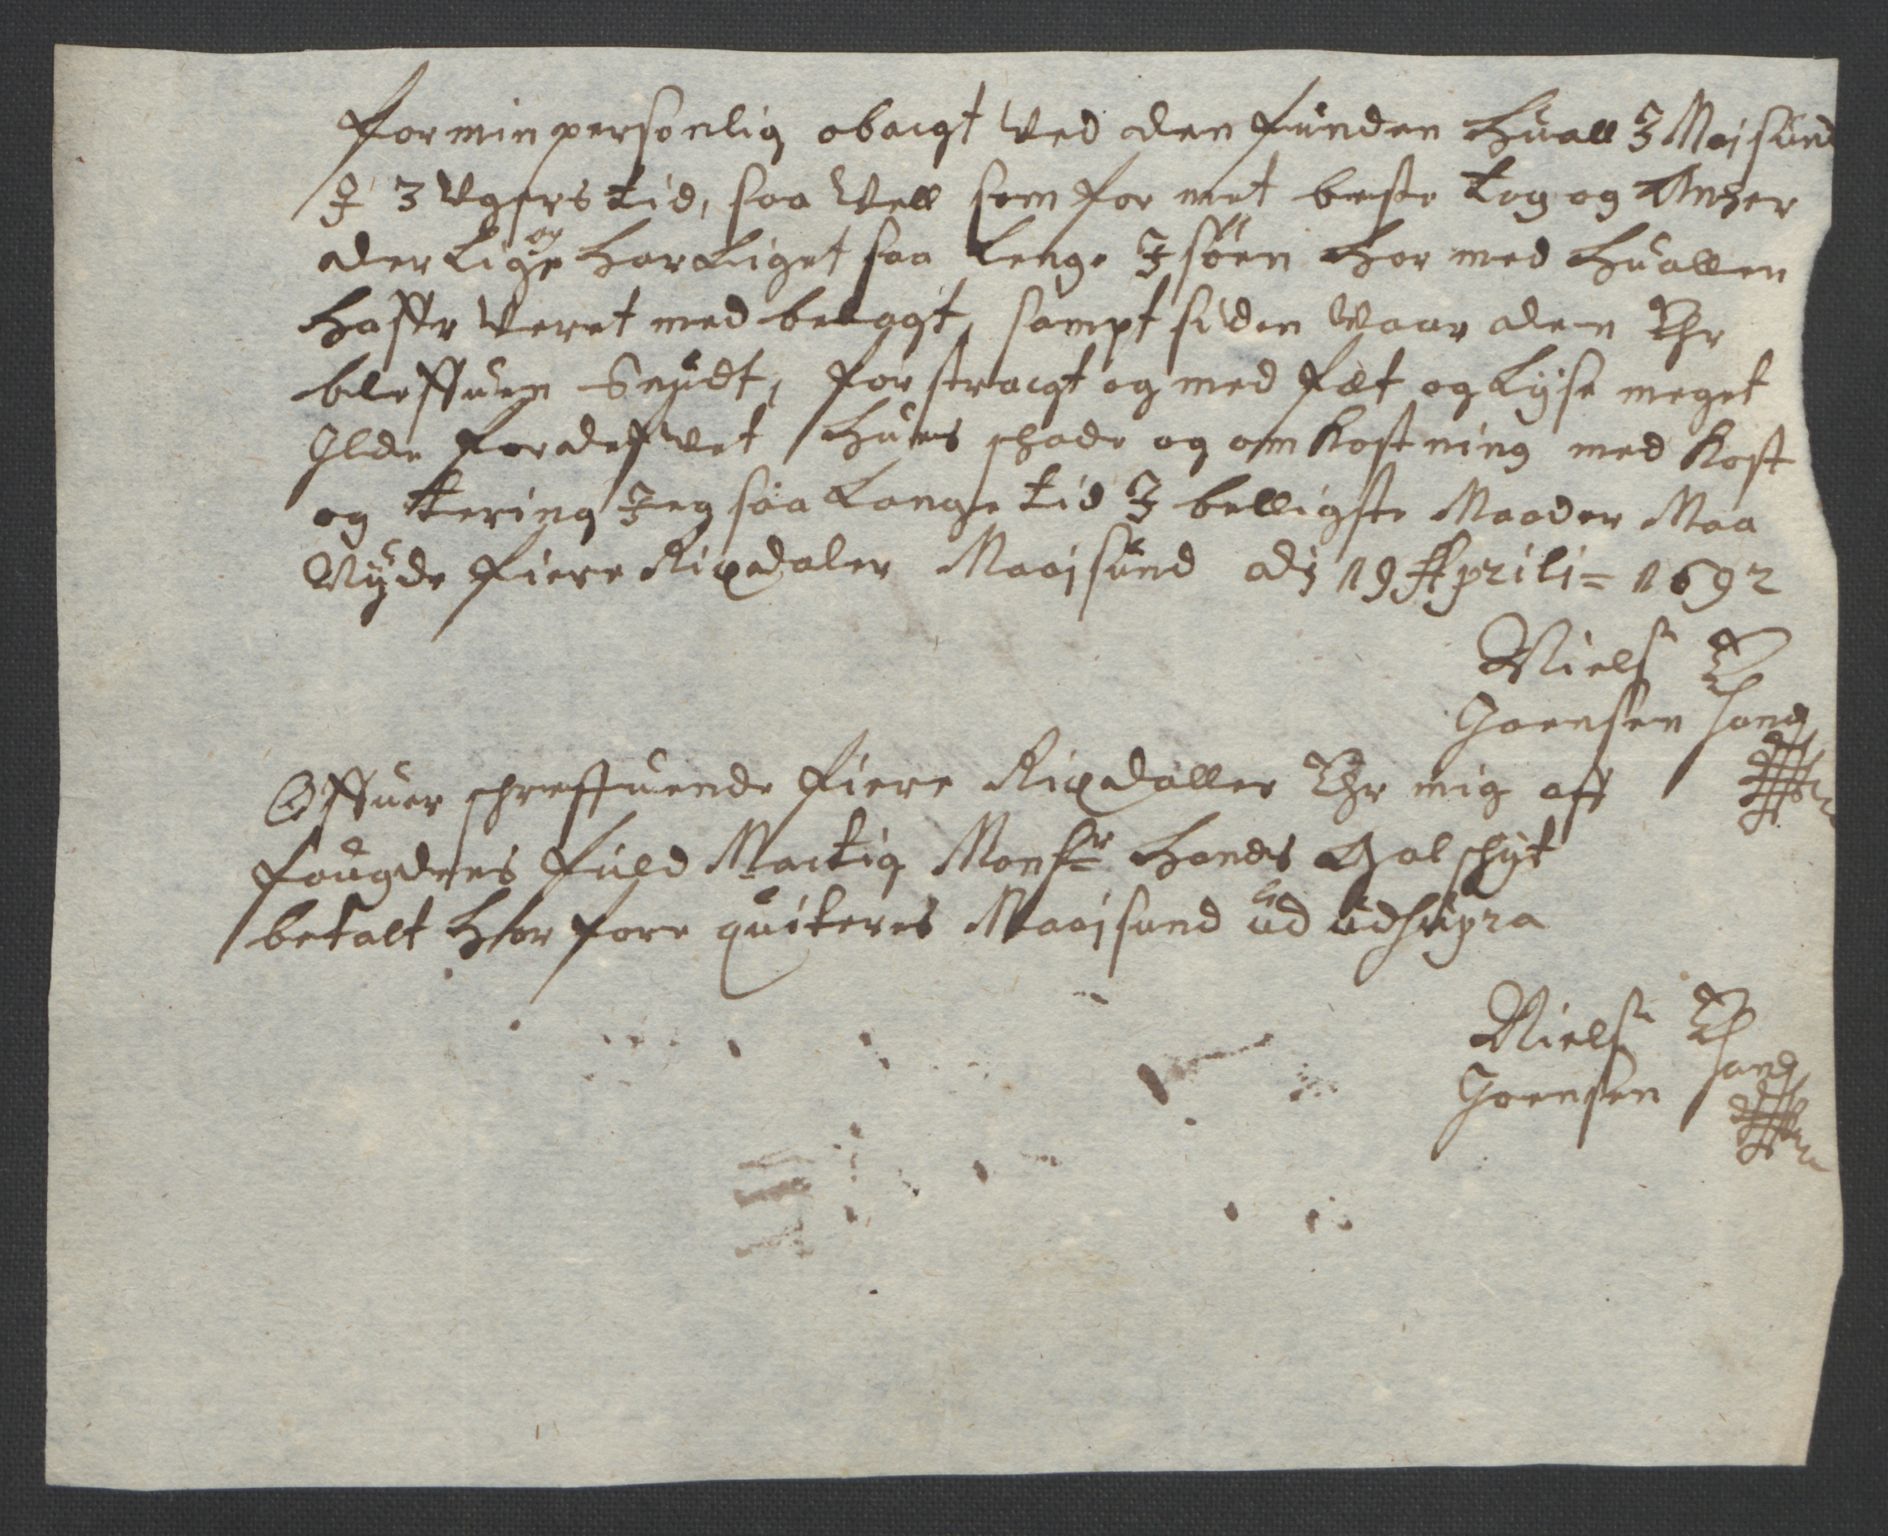 for min personlig obacgt ved den funden Huall J Maisund
J 3 Vgers tid, saa Vell som for met beste tog og Ancher
der Lige og har Liget saa Lenge J søen hor med Huallen
Haffr veret med belagt, sampt siden vaar den Ehr
bleffuen Snydt, forstracgt og med fæt og Lyse meget
Ilde forderfvet Huis schade og omkostning med Kost
og tering Jeg saa Lange tid J belligste Maader Maa
Nyde fiere Rixdaler Maajsund adj 19 Aprili = 1692
Niels
Joensen Hand
Offuer schreffuende fiere Rixdaller Ehr mig aff
fougdens fuld Mactig Monsr Hands Gal schyt
betalt Hor fore quiteres Maajsund ud udsupra
Niels
Joensen Hand